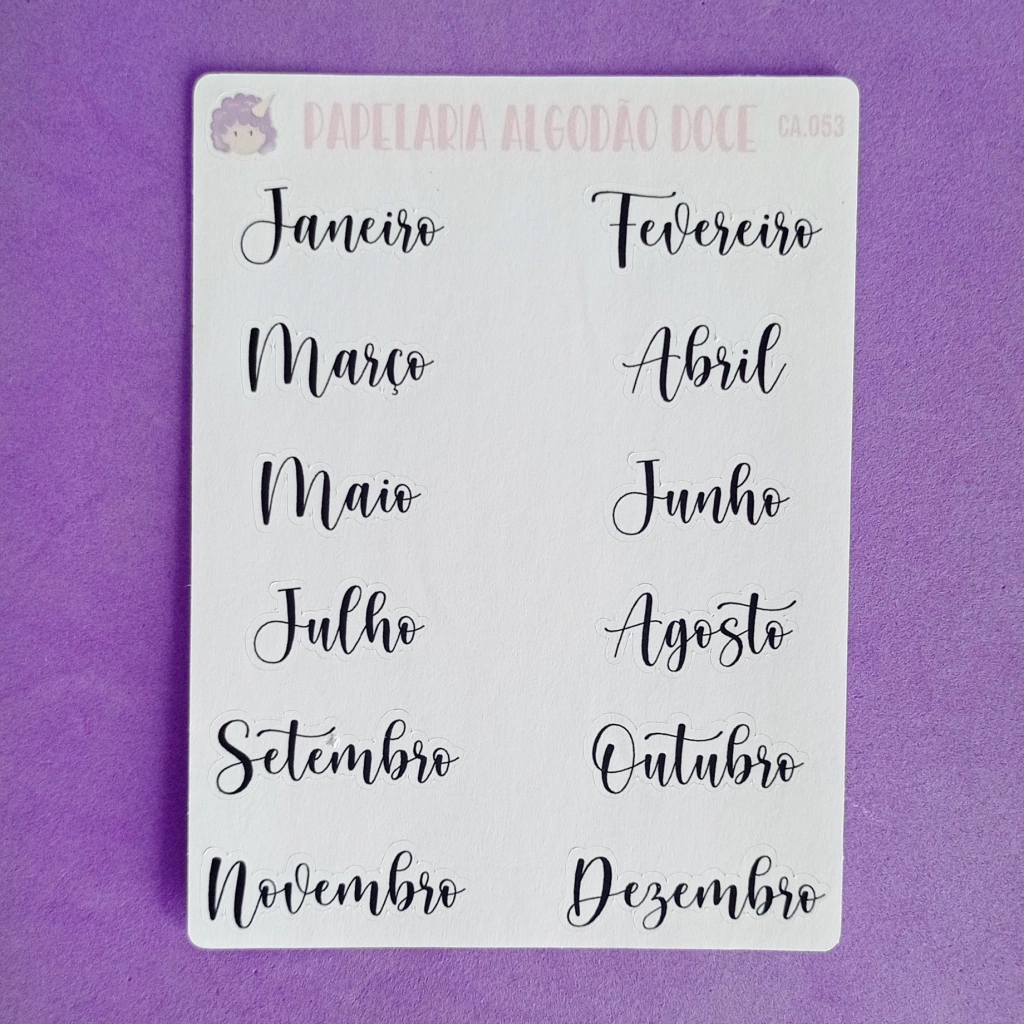 PAPELARIA ALGODÃO DOCE CA.053
Janeiro Fevereiro
Março Abril
Maio Junho
Julho Agosto
Setembro Outubro
Novembro Dezembro